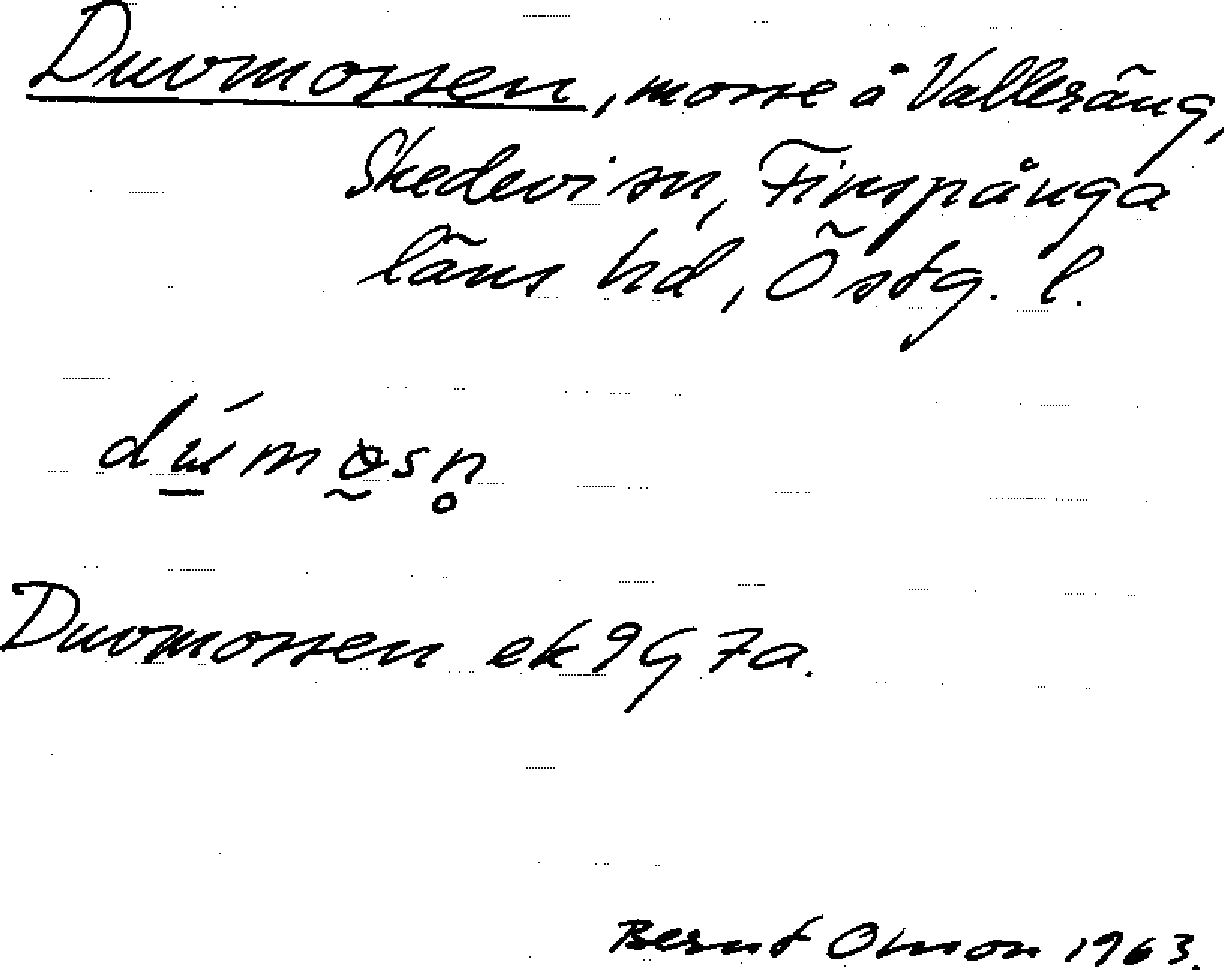 Duvmossen, mosse å Valleräng,
Skedevi sn, Finspånga
läns hd, Östg. l.
Duvmossen ek 9G 7a.
Bernt Olsson 1963.